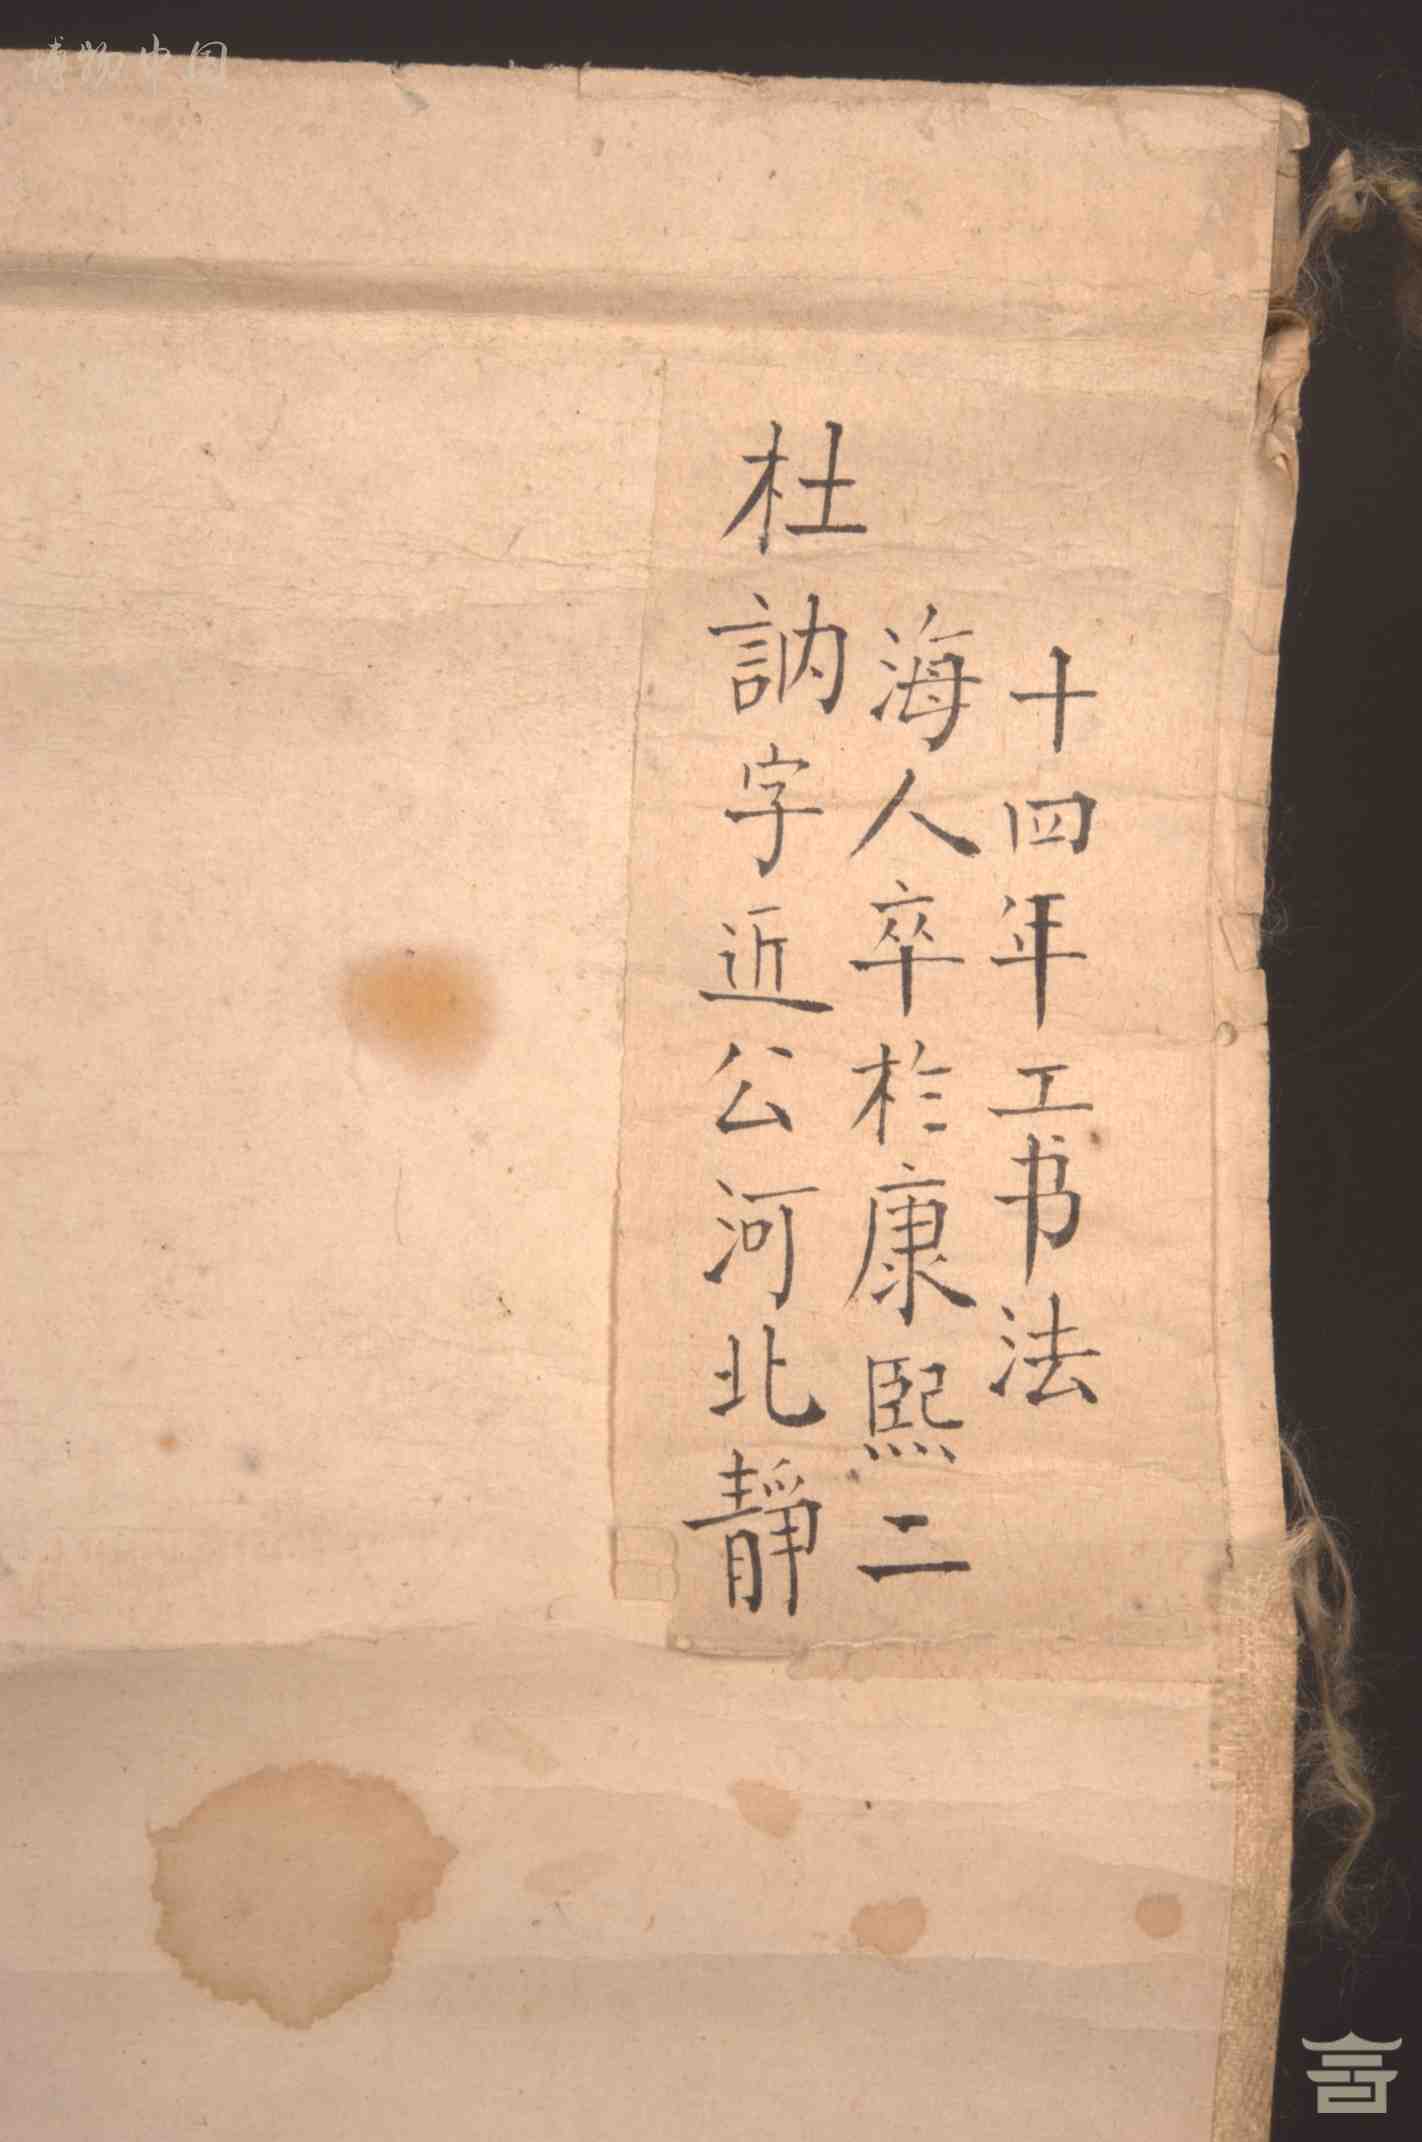 博物中国
杜訥字近公河北靜
海人卒於康熙二
十四年工书法